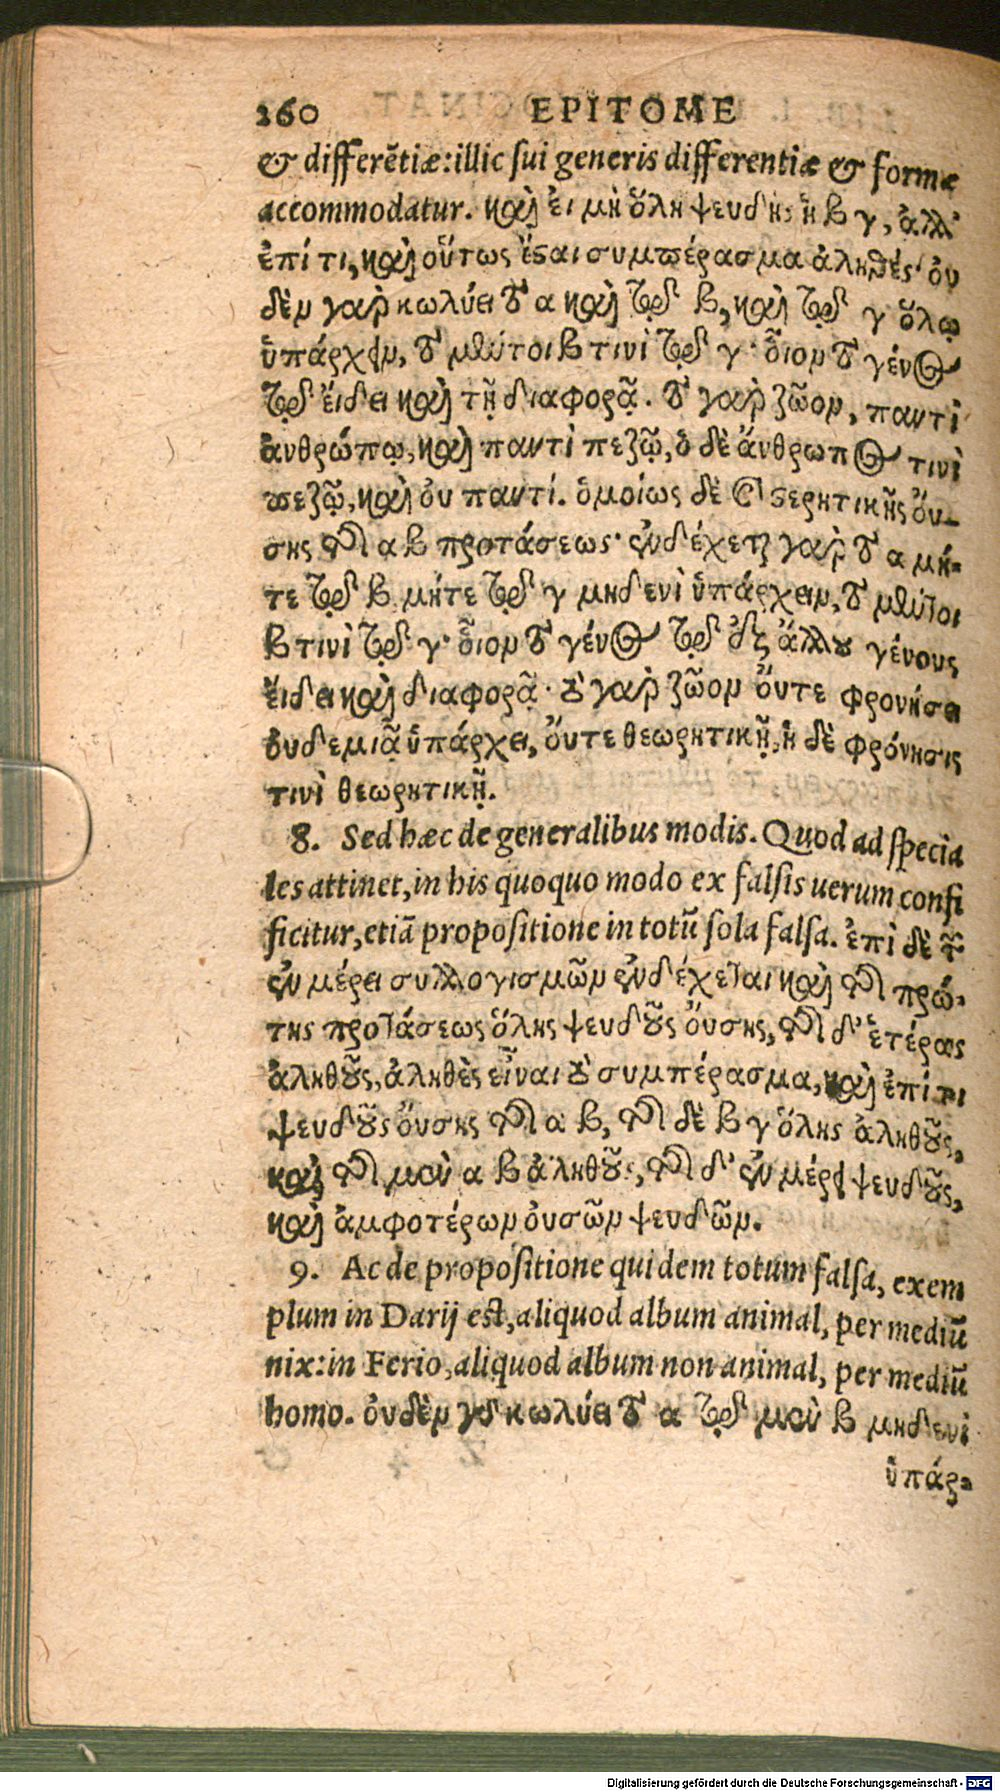 260 EPITOME
& differẽtiæ: illic sui generis differentiæ & formæ
accommodatur. καὶ ἐι μὴ ὅλη ψευδὴς ἡ β γ, ἀλλ'
ἐπί τι, καὶ οὕτως ἔσαι συμπέρασμα ἀληθές· ὀυ
δὲν γαρ κωλύει τὸ α καὶ τῷ β, καὶ τῷ γ ὅλῳ
ὑπάρχειν, τὸ μέντοι β τινὶ τῷ γ· οἷον τὸ γένος
τῷ ἔιδει καὶ τῇ διαφορᾷ. τὸ γαρ ζῶον, παντὶ
ἀνθρώπῳ, καὶ παντὶ πεζῷ, ὁ δὲ ἄνθρωπος τινὶ
πεζῷ, καὶ ὀυ παντί. ὁμοίως δὲ καὶ στερητικῆς ὄυ-
σης τῆς α β προτάσεως· ἐνδέχεται γαρ τὸ α μή-
τε τῷ β μήτε τῷ γ μηδενὶ ὑπάρχειν, τὸ μέντοι
β τινὶ τῷ γ· οἷον τὸ γένος τῷ ἐξ ἄλλου γένους
ἔιδει καὶ διαφορᾷ· τὸ γαρ ζῶον ὄυτε φρονήσει
ὀυδεμιᾷ ὑπάρχει, ὄυτε θεωρητικῇ, ἡ δὲ φρόνησις
τινὶ θεωρητικῇ.
8. Sed hæc de generalibus modis. Quod ad specia
les attinet, in his quoquo modo ex falsis uerum confi
ficitur, etiã propositione in totũ sola falsa. ἐπὶ δὲ τῶν
ἐν μέρει συλλογισμῶν ἐνδέχεται καὶ τῆς πρώ-
της προτάσεως ὅλης ψευδοῦς ὄυσης, τῆς δ' ἑτέρας
ἀληθοῦς, ἀληθὲς εἶναι τὸ συμπέρασμα, καὶ ἐπί τι
ψευδοῦς ὄυσης τῆς α β, τῆς δὲ β γ ὅλης ἀληθοῦς,
καὶ τῆς μὲν α β ἀληθοῦς, τῆς δ' ἐν μέρει ψευδοῦς,
καὶ ἀμφοτέρων ὀυσῶν ψευδῶν.
9. Ac de propositione quidem totum falsa, exem
plum in Darij est, aliquod album animal, per mediũ
nix: in Ferio, aliquod album non animal, per mediũ
homo. ὀυδὲν γαρ κωλύει τὸ α τῷ μὲν β μηδενὶ
ὑπάρ-
Digitalisierung gefördert durch die Deutsche Forschungsgemeinschaft - DFG